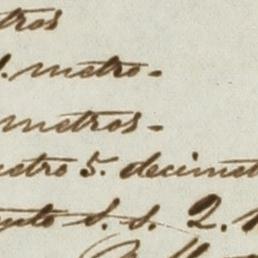 tros
1. metro.
metros.
etro 5. decimet
S. S. 2.